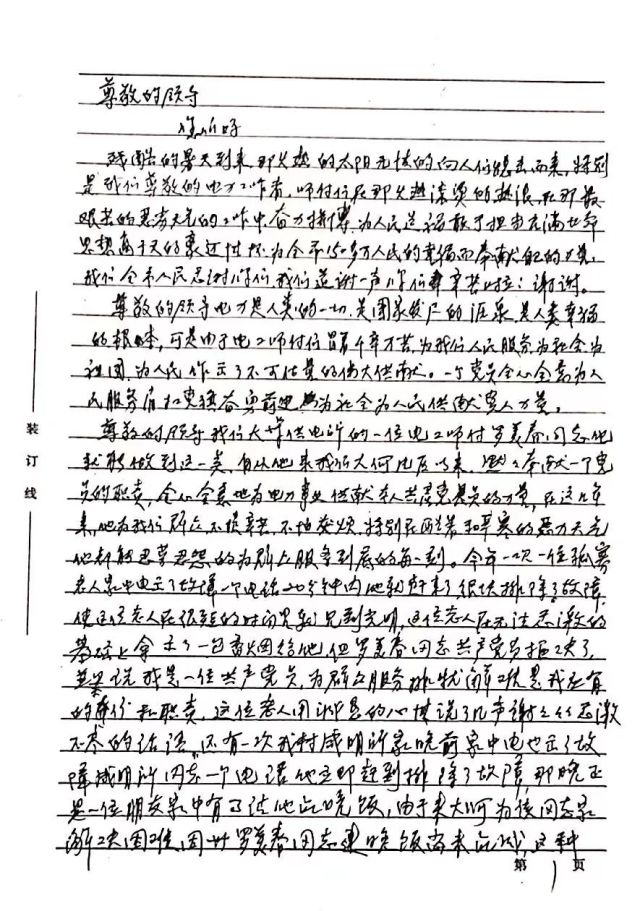 尊敬的领导
您们好
残酷的暑天到来,那炎热的太阳无情的向人们袭击而来,特别
是我们尊敬的电力工作者,师付们在那炎热滚烫的热浪,在那最
艰苦的恶劣天气的工作中奋力拼博,为人民造福敢于担当充满
思想高于天的豪迈情怀为全市150多万人民的幸福而奉献自己的力量,
我们全市人民感谢你们,我们道谢一声你们辛苦啦:谢谢。
尊敬的领导电力是人类的一切,是国家发展的源泉是人类幸福
的根本,可是由于电工师付们冒着千辛万苦,为我们人民服务为社会为
祖国,为人民作出了不可估量的伟大供献。一个党员全心全意为人
民服务肩扛党旗奋勇前进为社会为人民供献党人力量。
尊敬的领导我们大供电所的一位电工师付罗美春同志他
就能做到这一点,自从他来我们大河地区以来,默默奉献一个党
员的职责,全心全意地为电力事业供献本人共产党员的力量,在这几年
来,他为我们群众不怕辛苦,不怕麻烦,特别在酷暑和寒的恶劣天气
他都能忍辱忍怨的为群众服务到底的每一刻。今年一次一位孤寡
老人家中电出了故障一个电话20分钟内他就赶来了很快排除了故障
使这位老人在很短的时间里就见到光明,这位老人在无法感激的
基础上拿出了一包香烟给他但罗美春同志共产党员拒决了,
并说我是一位共产党员,为群众服务排忧解难是我应有
的本行和职责,这位老人用的心情说了几声谢谢感激
不尽的话语 还有一次我村咸明所家晚前家中电也出了故
障咸明所同志一个电话他立即赶到排除了故障,那晚正
是一位朋友家中有事请他吃晚饭,由于来大河为该同志家
解决困难,因此罗美春同志连晚饭尚未吃成,这种
装订线
第1页